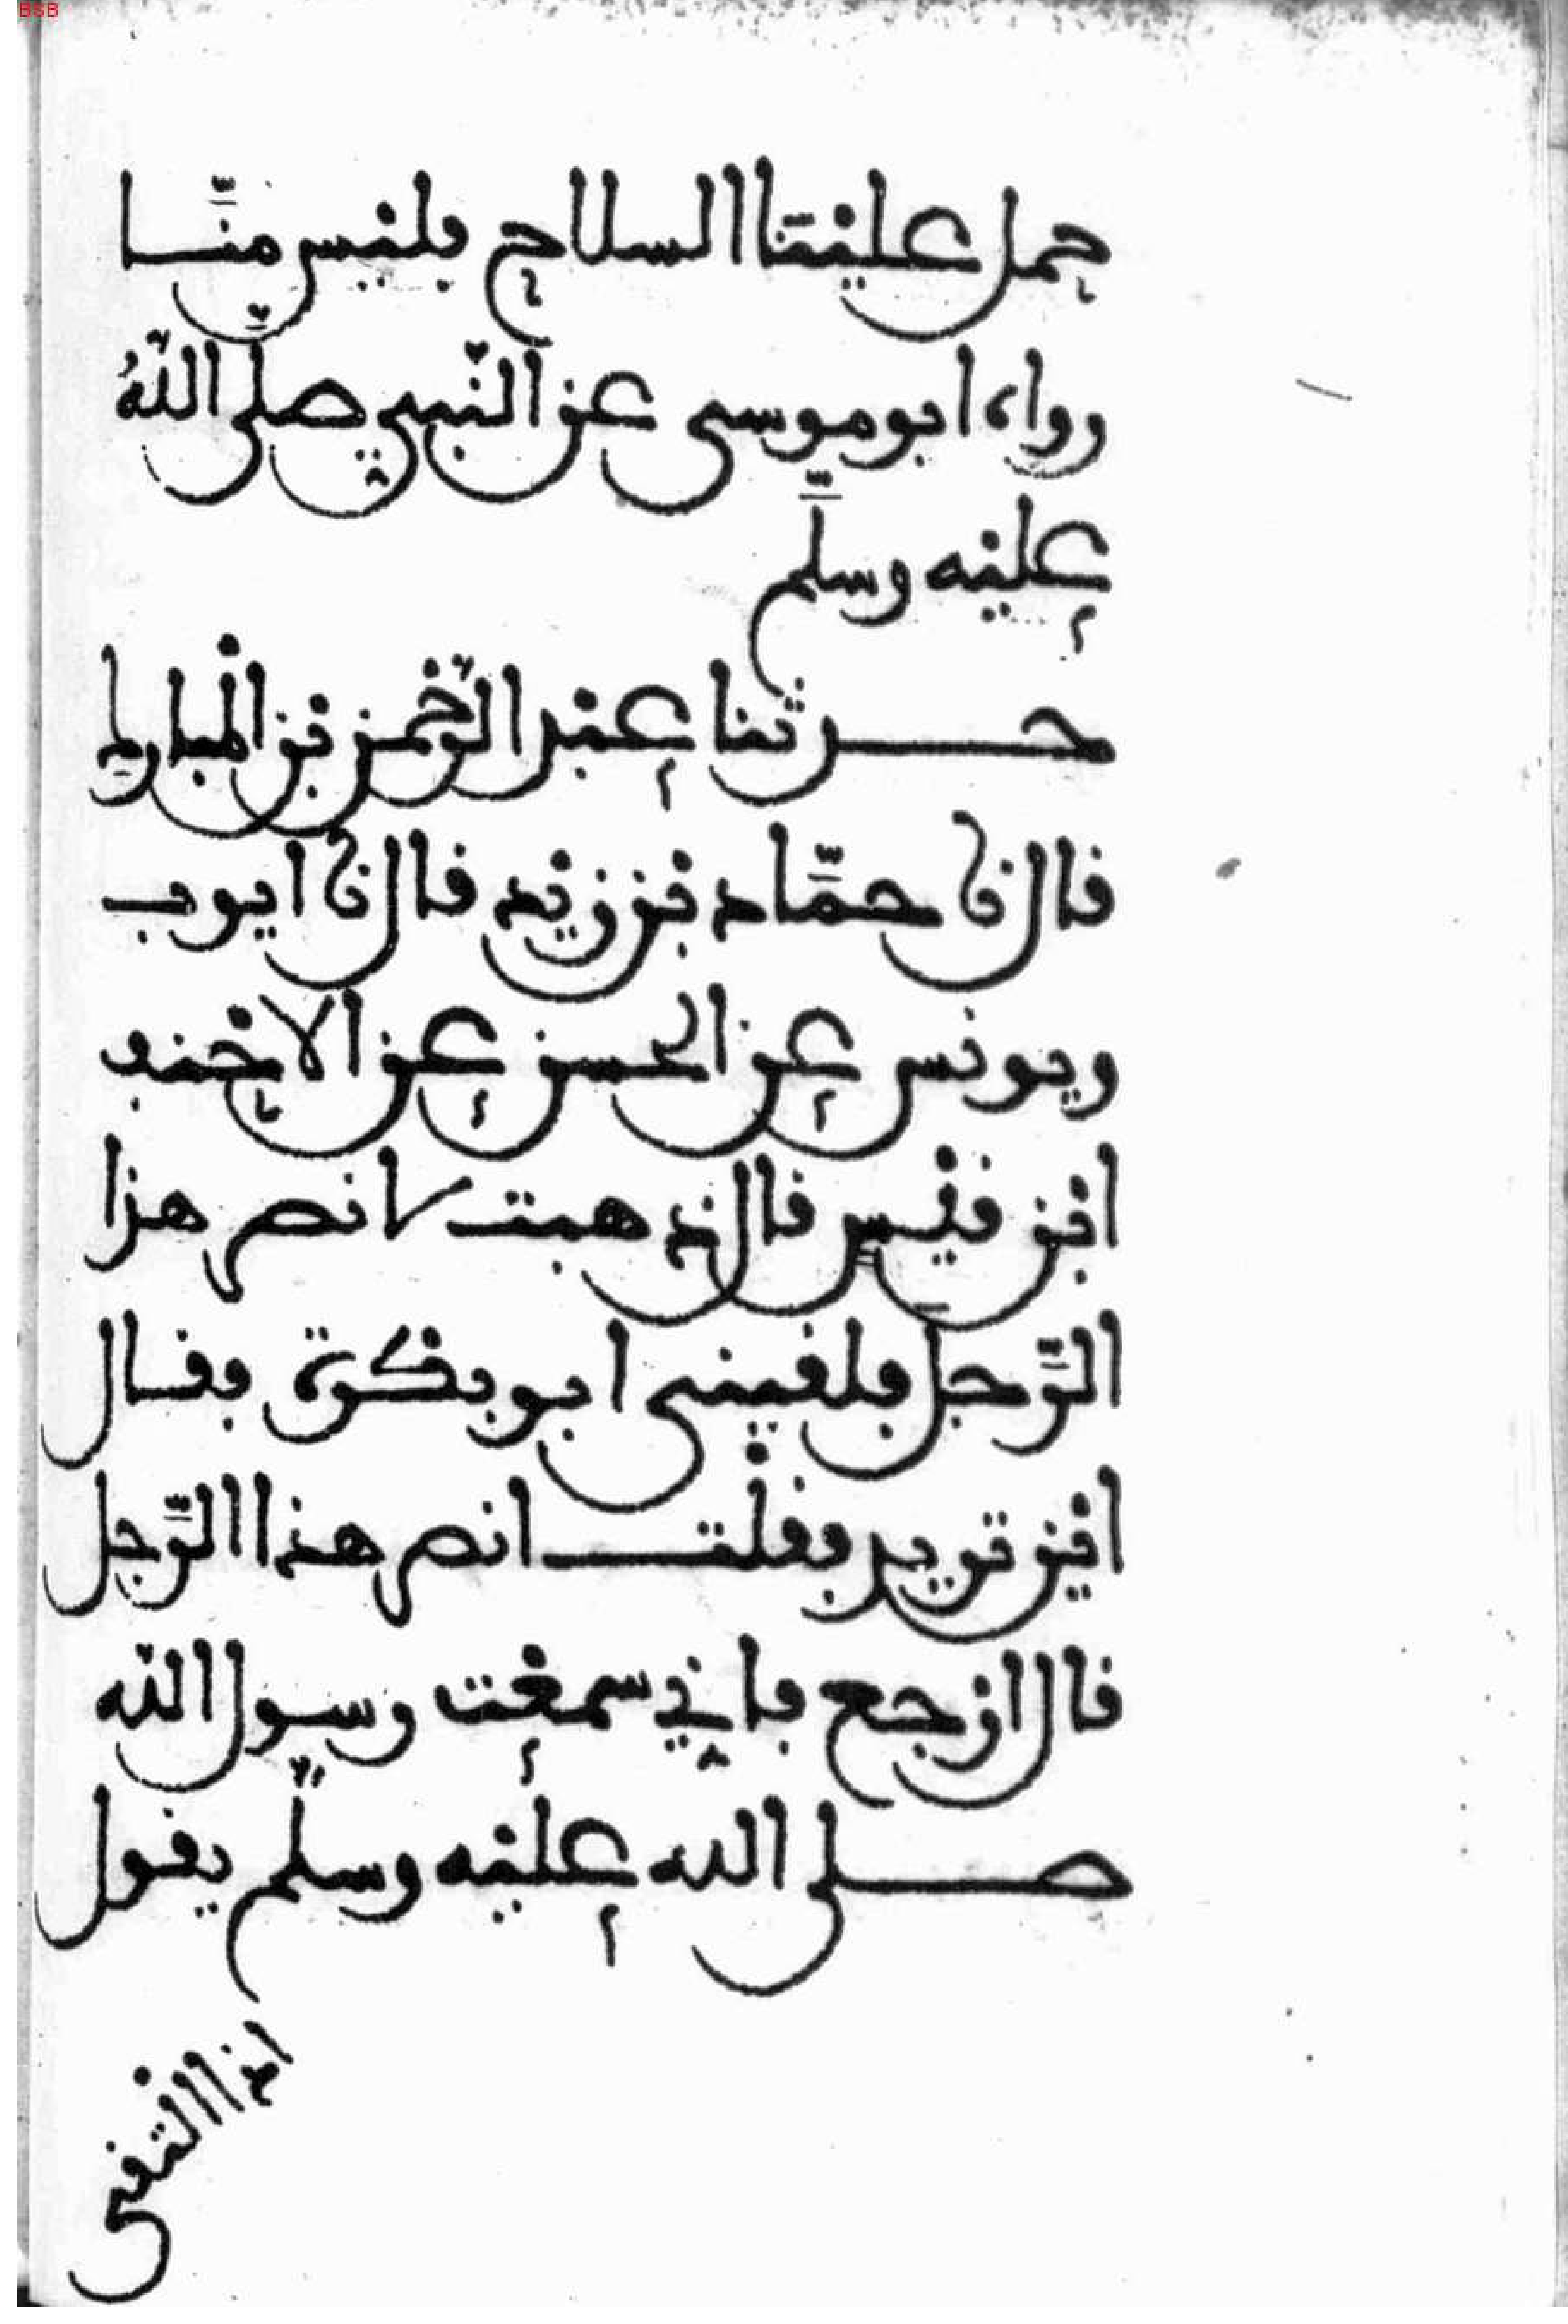 BSB
حمل علينا السلاح فليس منّا
رواه ابو موسى عن النّبي صلّى اللّهُ
عليه وسلّم
حدثنا عبد الرّحمن بن المبارك
قال نا حمّاد بن زيد قال نا ايوب
ويونس عن الحسن عن الاحنف
ابن قيس قال ذهبت لانصر هذا
الرّجل فلقيني ابو بكرة فقال
اين تريد فقلت انصر هذا الرّجل
قال ارجع فاني سمعت رسول اللّه
صلى الله عليه وسلّم يقول
اذا التقى